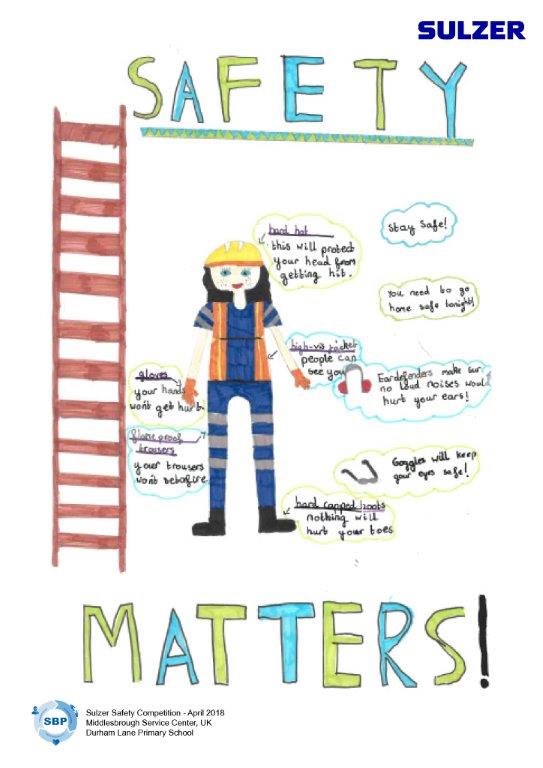 SULZER
SAFETY
hard hat
this will protect
your head from
getting hit.
Stay Safe!
You need to go
home safe tonight!
high-vis jacket
people can
see you
Eardefenders make sur
no loud noises would
hurt your ears!
gloves
your hands
wont get hurt.
flame proof
trousers
your trousers
wont setafire
Goggles will keep
your eyes safe!
hard capped boots
nothing will
hurt your toes
MATTERS!
SBP
Sulzer Safety Competition - April 2018
Middlesbrough Service Center, UK
Durham Lane Primary School